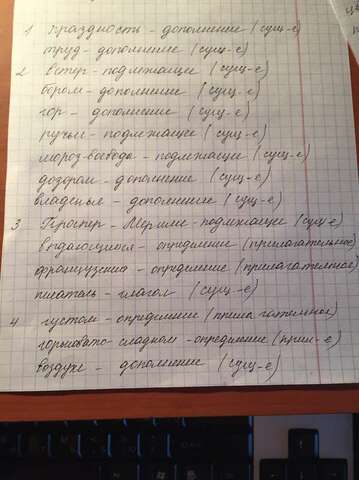 1 Праздность - дополнение (сущ-е)
труд - дополнение (сущ-е)
2 ветер - подлежащее (сущ-е)
бором - дополнение (сущ-е)
гор - дополнение (сущ-е)
ручьи - подлежащее (сущ-е)
мороз-воевода - подлежащее (сущ-е)
дозором - дополнение (сущ-е)
владенья - дополнение (сущ-е)
3 Проспер - Мериме - подлежащее (сущ-е)
выдающийся - определение (прилагательное)
французский - определение (прилагательное)
писатель - глагол (сущ-е)
4 густом - определение (прилагательное)
горьковато-сладком - определение (прил-е)
воздухе - дополнение (сущ-е)